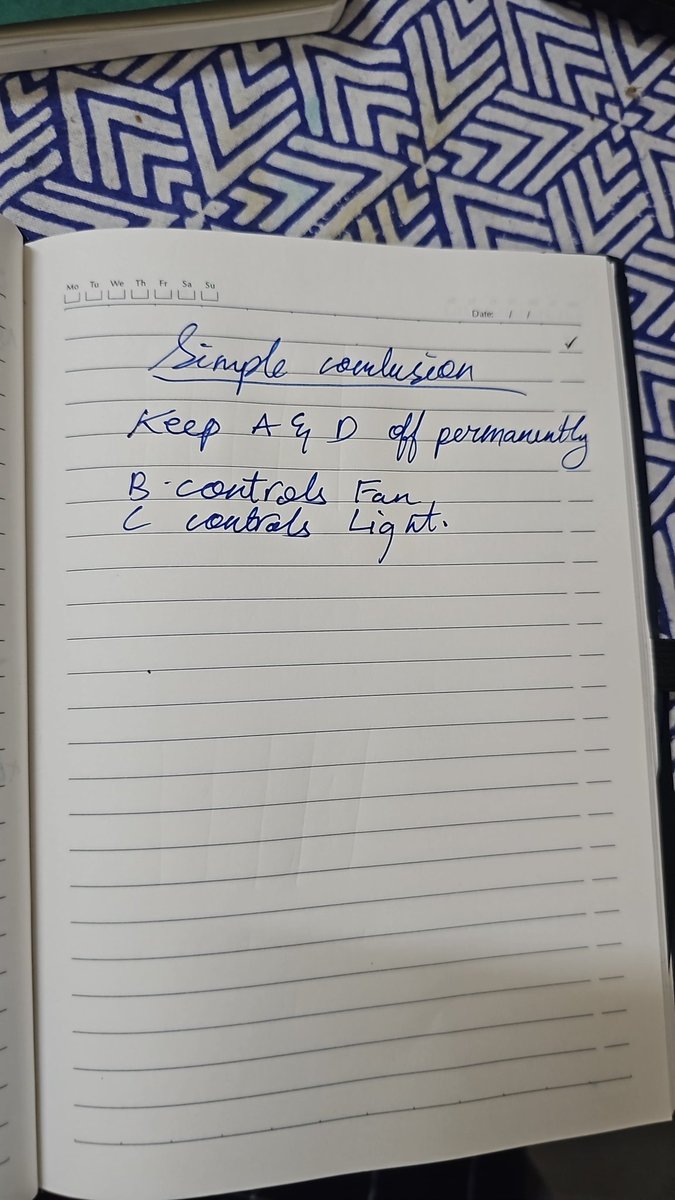 Mo Tu We Th Fr Sa Su
Date: / /
Simple conclusion
Keep A & D off permanently
B controls Fan
C controls Light.